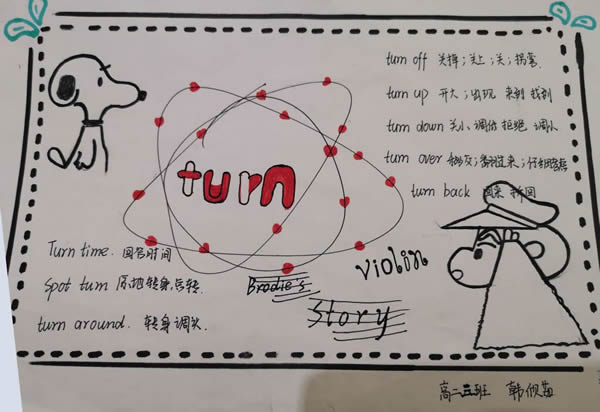 turn off 关掉；关上；关；拐弯.
turn up 开大；出现 来到 找到
turn down 关小 调低 拒绝 调头
turn over
turn back 回来 折回
turn
Turn time. 回合时间
spot turn 原地转身，
turn around. 转身 调头.
Brodie's
violin
Story
高二三班 韩